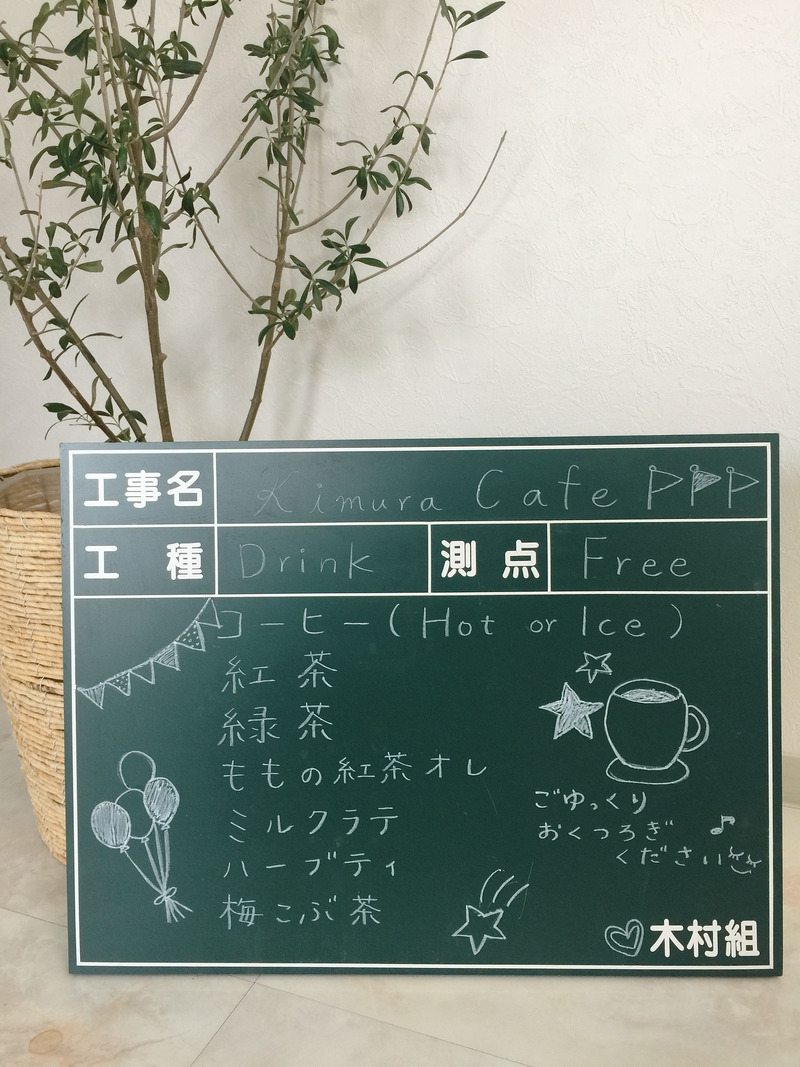 工事名 Kimura Cafe
工種 Drink 測点 Free
コーヒー(Hot or Ice)
紅茶
緑茶
ももの紅茶オレ
ミルクラテ
ハーブティ
梅こぶ茶
ごゆっくり
おくつろぎ
ください
木村組